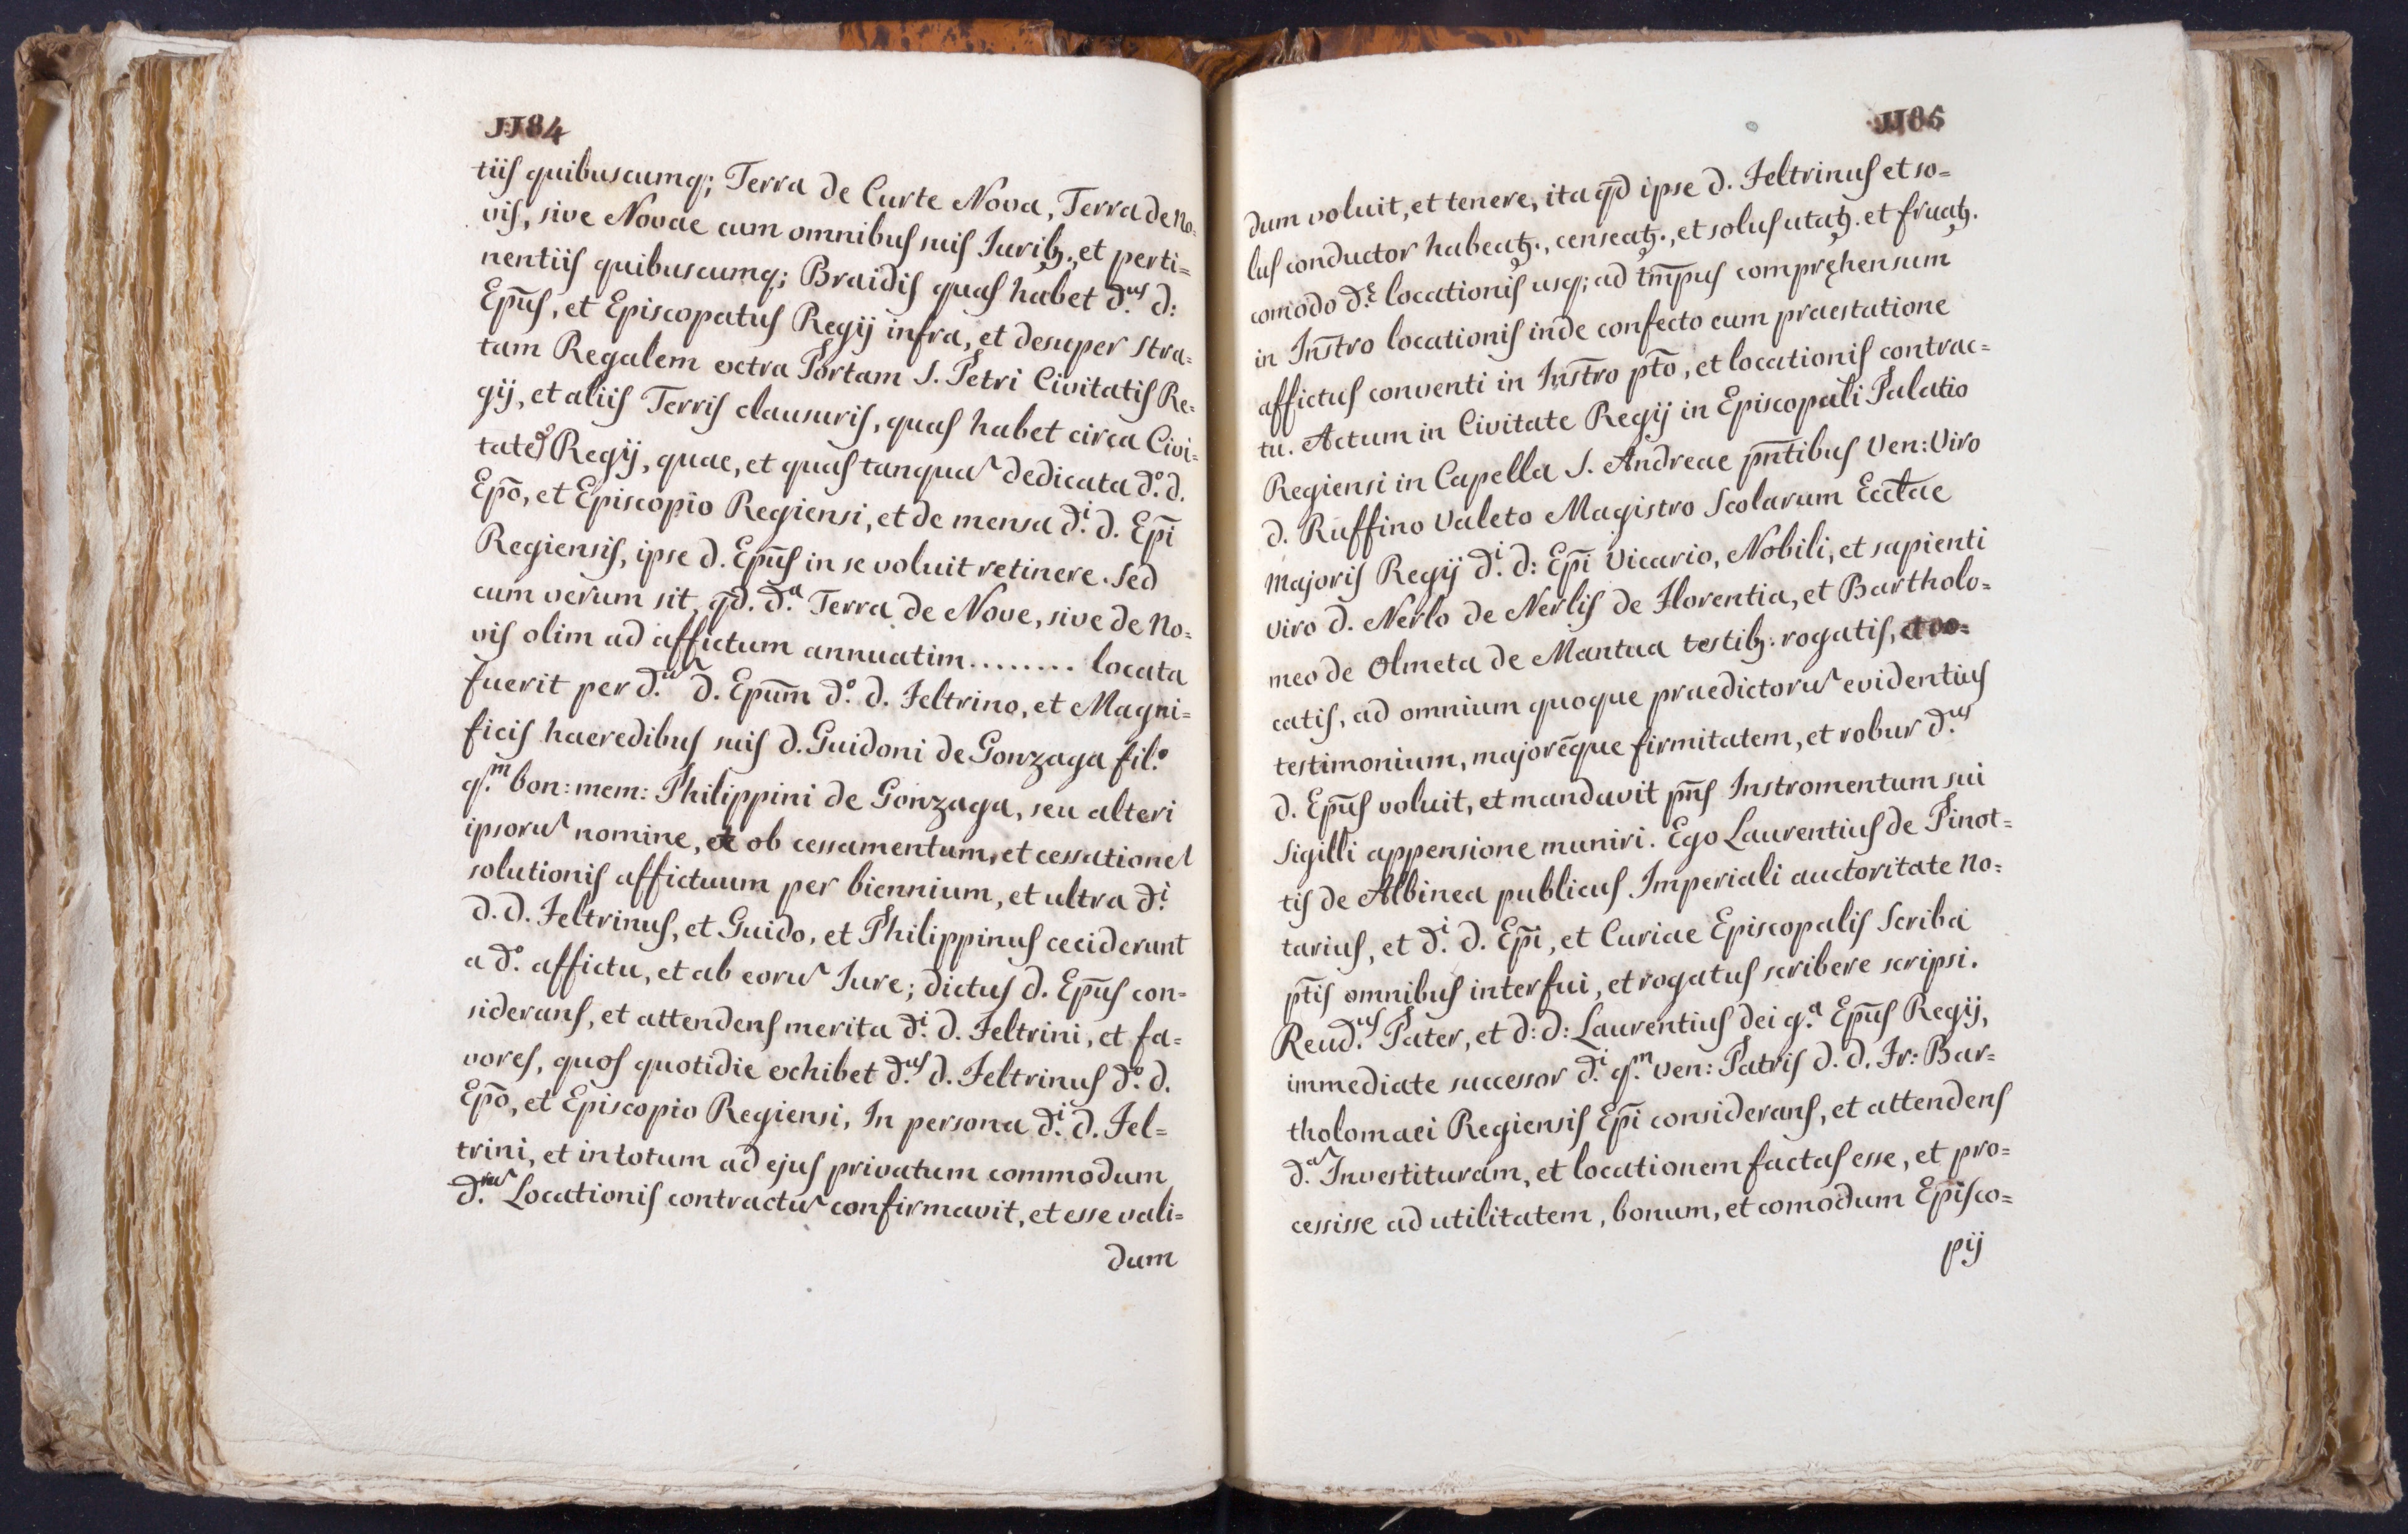 1184
tiis quibuscumq; Terra de Curte Nova, Terra de No=
vis, sive Novae cum omnibus suis Iurib9., et perti=
nentiis quibuscumq; Braidis quas habet d.us d:
Ep̄us, et Episcopatus Regij infra, et desuper stra=
tam Regalem extra Portam S. Petri Civitatis Re=
gij, et aliis Terris clausuris, quas habet circa Civi=
tatē Regij, quae, et quas tanquā dedicata d.o d.
Ep̄o, et Episcopio Regiensi, et de mensa d.i d. Ep̄i
Regiensis, ipse d. Ep̄us in se voluit retinere. Sed
cum verum sit, qd̄. d.a Terra de Nove, sive de No=
vis olim ad affictum annuatim ........ locata
fuerit per d.ū d. Ep̄um d.o d. Feltrino, et Magni=
ficis haeredibus suis d. Guidoni de Gonzaga fil.o
q.m bon: mem: Philippini de Gonzaga, seu alteri
ipsorū nomine, et ob cessamentum, et cessationē
solutionis affictuum per biennium, et ultra d.i
d. d. Feltrinus, et Guido, et Philippinus ceciderunt
a d.o affictu, et ab eorū Iure; dictus d. Ep̄us con=
siderans, et attendens merita d.i d. Feltrini, et fa=
vores, quos quotidie exhibet d.us d. Feltrinus d.o d.
Ep̄o, et Episcopio Regiensi, In persona d.i d. Fel=
trini, et in totum ad ejus privatum commodum
d.rū Locationis contractū confirmavit, et esse vali=
dum
1185
dum voluit, et tenere, ita qd̄ ipse d. Feltrinus et so=
lus conductor habeatꝫ., censeatꝫ., et solus utatꝫ. et fruatꝫ.
comodo d.ę locationis usq; ad tm̄pus compręhensum
in Instr̄o locationis inde confecto cum praestatione
affictus conventi in Instr̄o pt̄o, et locationis contrac=
tu. Actum in Civitate Regij in Episcopali Palatio
Regiensi in Capella S. Andreae pn̄tibus Ven: Viro
d. Ruffino Valeto Magistro Scolarum Eccl̄ae
Majoris Regij d.i d: Ep̄i Vicario, Nobili, et sapienti
viro d. Nerlo de Nerlis de Florentia, et Bartholo=
meo de Olmeta de Mantua testib9. rogatis, et vo=
catis, ad omnium quoque praedictorū evidentius
testimonium, majorēque firmitatem, et robur d.us
d. Ep̄us voluit, et mandavit pn̄s Instromentum sui
Sigilli appensione muniri. Ego Laurentius de Pinot=
tis de Albinea publicus Imperiali auctoritate No=
tarius, et d.i d. Ep̄i, et Curiae Episcopalis Scriba
pt̄is omnibus interfui, et rogatus scribere scripsi.
Reud.us Pater, et d: d: Laurentius dei g.a Ep̄us Regij,
immediate successor d.i q.m Ven: Patris d. d. Fr: Bar=
tholomaei Regiensis Ep̄i considerans, et attendens
d.ā Investituram, et locationem factas esse, et pro=
cessisse ad utilitatem, bonum, et comodum Episco=
pij